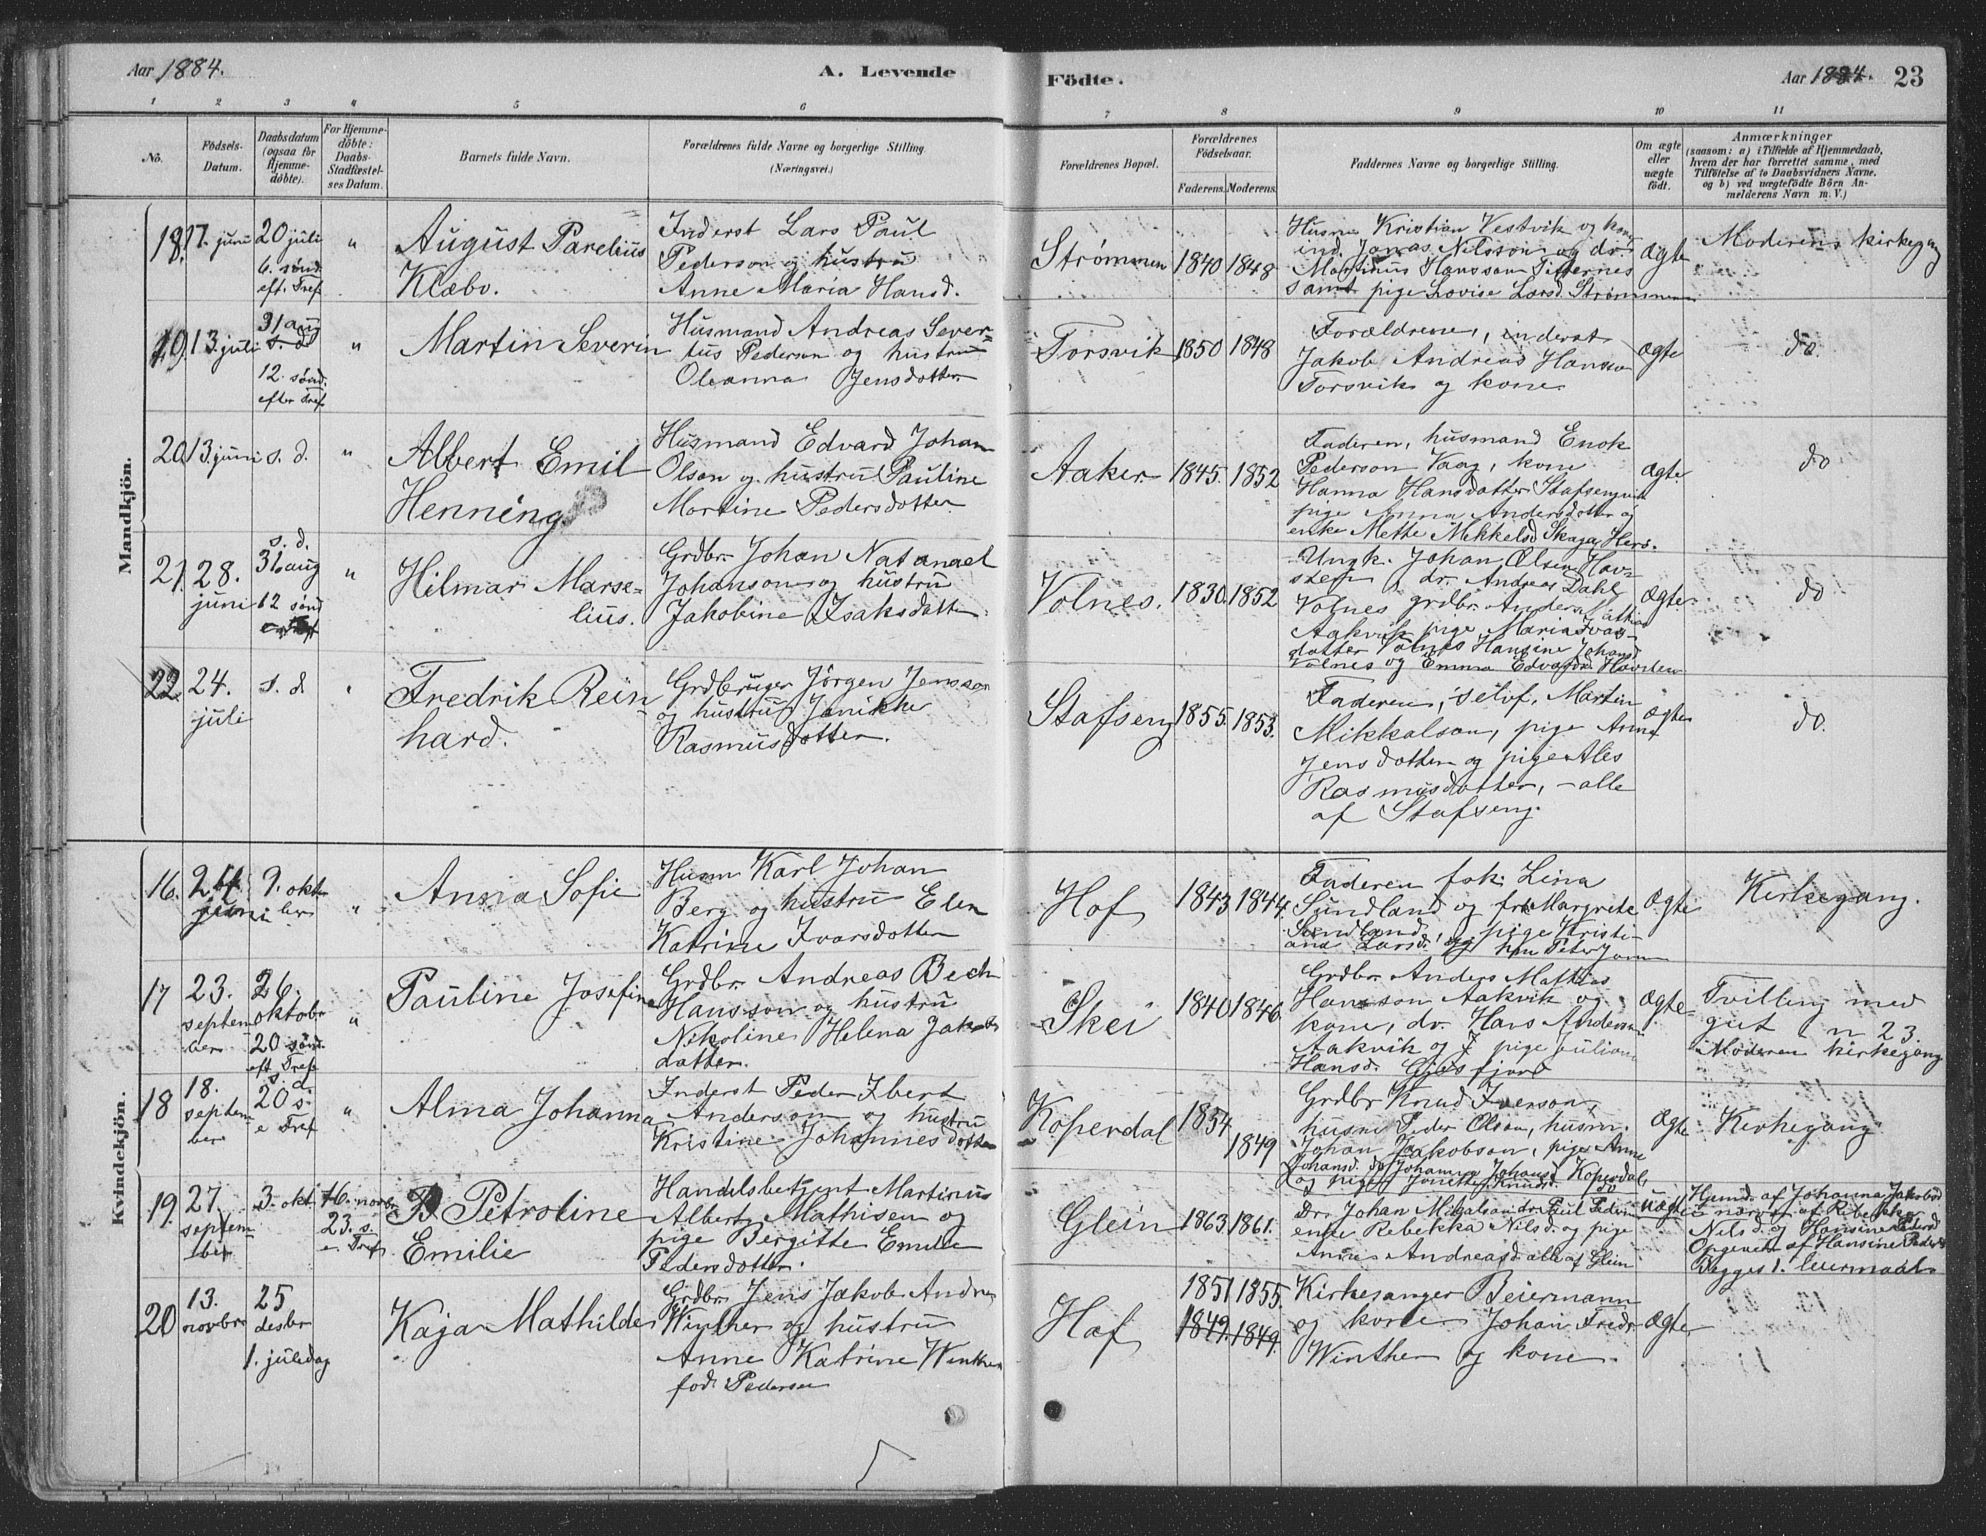 Aar 1884.
A. Levende
Födte.
Aar 1884. 23
1 2 3 4 5 6 7 8 9 10 11
No.
Födsels-
Datum.
Daabsdatum
(ogsaa for
Hjemme-
döbte).
For Hjemme-
döbte:
Daabs-
Stadfæstel-
ses Datum.
Barnets fulde Navn.
Forældrenes fulde Navne og borgerlige Stilling
(Næringsvei.)
Forældrenes Bopæl.
Forældrenes
Födselsaar.
Faderens. Moderens.
Faddernes Navne og borgerlige Stilling.
Om ægte
eller
uægte
födt.
Anmærkninger
(saasom: a) i Tilfælde af Hjemmedaab,
hvem der har forrettet samme, med
Tilföielse af to Daabsvidners Navne,
og b) ved uægtefödte Börn An-
melderens Navn m. V.)
Mandkjön.
18. 17. juni
20 juli
6. sönd.
eft. Tref
"
August Parelius
Klæbo.
Inderst Lars Paul
Pederson og hustru
Anne Maria Hansd.
Strømmen 1840 1848
Husm. Kristian Vestvik og kone
ind. Jonas Nilsson og dr.
Martinus Hansson
samt pige Lovise Larsd. Strømmen
ægte
Moderens kirkegang
19. 13. juli
31 aug
s. d.
12. sönd.
efter Tref
"
Martin Severin
Husmand Andreas Sever-
tus Pederson og hustru
Oleanna Jensdotter
Torsvik 1850 1848
Forældrene, inderst
Jakob Andreas Hansson
Torsvik og kone
ægte
do.
20 13. juni s. d. "
Albert Emil
Henning
Husmand Edvard Johan
Olson og hustru Pauline
Martine Pedersdotter
Aaker 1845. 1852
Faderen, husmand Enok
Pederson Vaag, kone
Hanna Hansdotter
pige Anna Andersdotter og
enke Mette Mikkelsd. Skaga, Herö.
ægte
do
21. 28.
juni
s. d.
31 aug
12 sönd
"
Hilmar Marse-
lius.
Grdbr. Johan Natanael
Johanson og hustru
Jakobine Isaksdatter.
Volnes. 1830. 1852
Ungk. Johan Olsen Hav-
sten, dr. Andreas Dahl
Volnes grdbr. Anders Mathias
Aakvik pige Maria Ivars-
dotter Volnes Hansine Johansd.
Volnes og Emma Edvardsd. Havsten
ægte
do
22. 24.
juli
s. d "
Fredrik Rein
hard.
Grdbruger Jørgen Jensson
og hustru Janikke
Rasmusdotter.
Stafseng 1855. 1853.
Faderen, selvf. Martin
Mikkalson, pige Anna
Jensdotter og pige Ales
Rasmusdotter, - alle
af Stafseng.
ægte
do.
Kvindekjön.
16. 24
juni
9. okto
ber
"
Anna Sofie
Husm Karl Johan
Berg og hustru Elen
Katrine Ivarsdotter
Hof 1843 1844.
Faderen, fok. Lina
Sundland og frk Margrete
Sundland, pige Kristi-
ane Larsd. og Peter
ægte
Kirkegang.
17 23.
septem
ber
26.
oktobr
20 sönd.
eft. Tref.
"
Pauline Josefine
Grdbr. Andreas Bech
Hansson og hustru
Nikoline Helena Jakobs
datter.
Skei 1840 1846
Grdbr. Anders Mathias
Hansson Aakvik og
kone, dr. Hans Anderson
Aakvik og pige Juliane
Hansd.
ægte
Tvilling med
gut n 23.
Moderen kirkegang
18 18.
septem
ber
s. d.
20 s.
e Tref
"
Alma Johanna
Inderst Peder Ibert
Anderson og hustru
Kristine Johannesdotter
Koperdal 1854. 1849
Grdbr Knud Iverson,
husm. Peder Olson, husm.
Johan Jakobson, pige Anne
Johansd. do Johanna Johansd. Koperdal
og pige Knudsd.
ægte
Kirkegang
19. 27.
septem
ber
3. okt.
16. novbr
23. s.
e. Tref
Petroline
Emilie
Handelsbetjent Martinus
Albert Mathisen og
pige Bergitte Emilie
Pedersdotter.
Glein 1863. 1861.
Dr. Johan Mikalson dr. Paul Peder
enke Rebekka Nilsd. og pige
Anne Andreasd. alle af Glein
uægte
Hjemd. af Johanna Jakobsd
i nærv. af Rebekka
Nilsd. og Hansine Pedersd
Opgivet af Hansine Pedersd
Begges 1. leiermaal.
20 13.
novbr
25
desbr
1. juledag
Kaja Mathilde
Grdbr. Jens Jakob Andreas
Winther og hustru
Anne Katrine Winther
föd. Pedersen
Hof 1851 1855.
1849. 1849.
Kirkesanger Beiermann
og kone, Johan Fredr
Winther og kone.
ægte